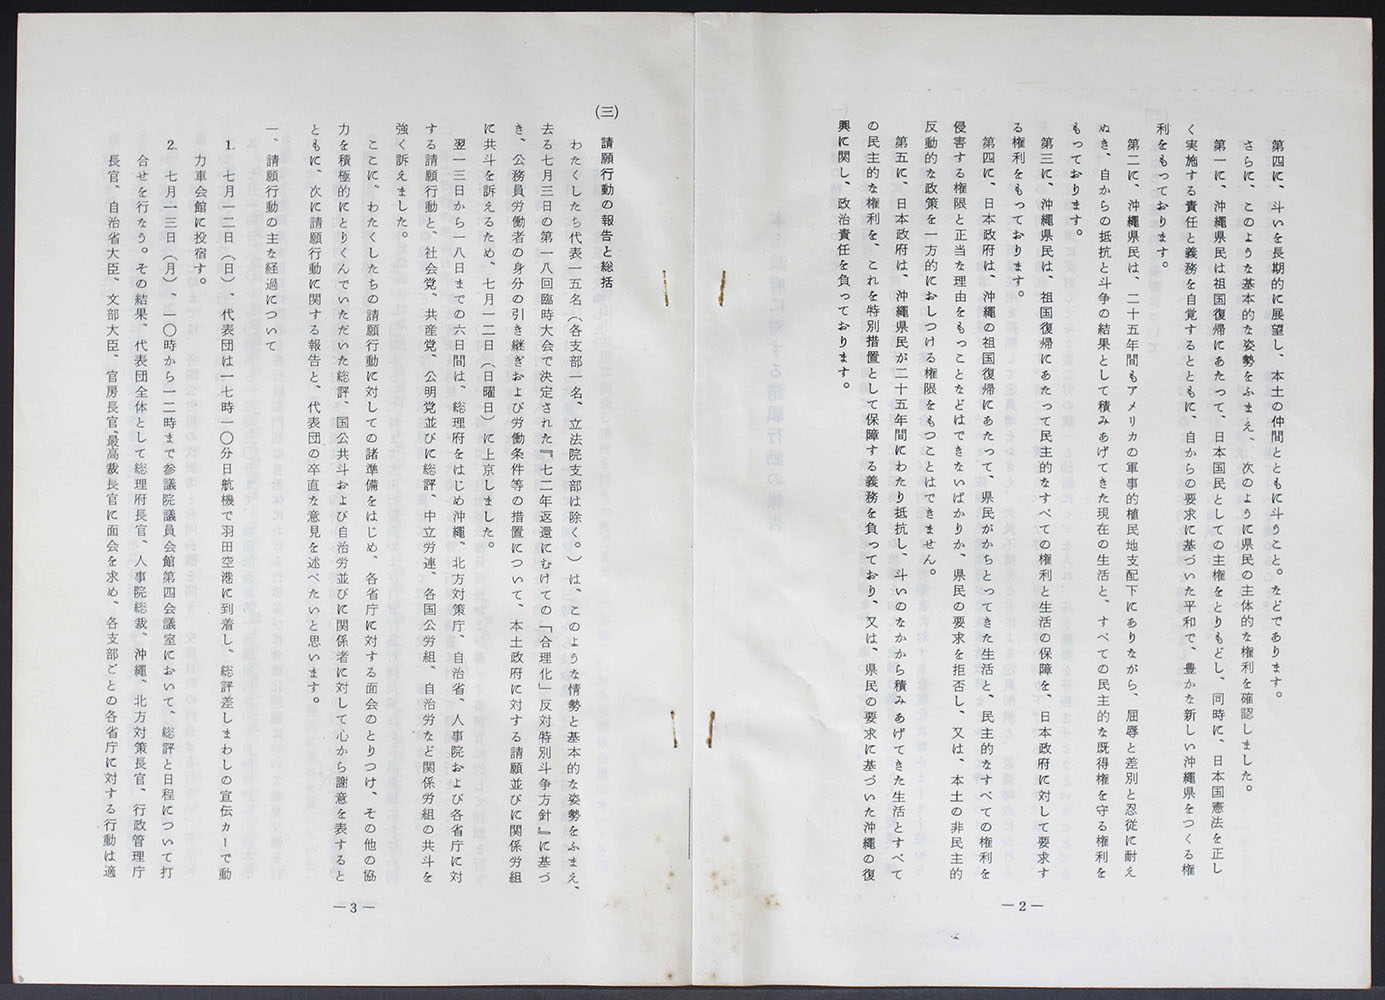 第四に、斗いを長期的に展望し、本土の仲間とともに斗うこと。などであります。
さらに、このような基本的な姿勢をふまえ、次のように県民の主体的な権利を確認しました。
第一に、沖縄県民は祖国復帰にあたって、日本国民としての主権をとりもどし、同時に、日本国憲法を正し
く実施する責任と義務を自覚するとともに、自からの要求に基づいた平和で、豊かな新しい沖縄県をつくる権
利をもっております。
第二に、沖縄県民は、二十五年間もアメリカの軍事的植民地支配下にありながら、屈辱と差別と忍従に耐え
ぬき、自からの抵抗と斗争の結果として積みあげてきた現在の生活と、すべての民主的な既得権を守る権利を
もっております。
第三に、沖縄県民は、祖国復帰にあたって民主的なすべての権利と生活の保障を、日本政府に対して要求す
る権利をもっております。
第四に、日本政府は、沖縄の祖国復帰にあたって、県民がかちとってきた生活と、民主的なすべての権利を
侵害する権限と正当な理由をもつことなどはできないばかりか、県民の要求を拒否し、又は、本土の非民主的
反動的な政策を一方的におしつける権限をもつことはできません。
第五に、日本政府は、沖縄県民が二十五年間にわたり抵抗し、斗いのなかから積みあげてきた生活とすべて
の民主的な権利を、これを特別措置として保障する義務を負っており、又は、県民の要求に基づいた沖縄の復
興に関し、政治責任を負っております。
—2—
(三) 請願行動の報告と総括
わたくしたち代表一五名(各支部一名、立法院支部は除く。)は、このような情勢と基本的な姿勢をふまえ、
去る七月三日の第一八回臨時大会で決定された『七二年返還にむけての「合理化」反対特別斗争方針』に基づ
き、公務員労働者の身分の引き継ぎおよび労働条件等の措置について、本土政府に対する請願並びに関係労組
に共斗を訴えるため、七月一二日(日曜日)に上京しました。
翌一三日から一八日までの六日間は、総理府をはじめ沖縄、北方対策庁、自治省、人事院および各省庁に対
する請願行動と、社会党、共産党、公明党並びに総評、中立労連、各国公労組、自治労など関係労組の共斗を
強く訴えました。
ここに、わたくしたちの請願行動に対しての諸準備をはじめ、各省庁に対する面会のとりつけ、その他の協
力を積極的にとりくんでいただいた総評、国公共斗および自治労並びに関係者に対して心から謝意を表すると
ともに、次に請願行動に関する報告と、代表団の卒直な意見を述べたいと思います。
一、請願行動の主な経過について
1. 七月一二日(日)、代表団は一七時一〇分日航機で羽田空港に到着し、総評差しまわしの宣伝カーで動
力車会館に投宿す。
2. 七月一三日(月)、一〇時から一二時まで参議院議員会館第四会議室において、総評と日程について打
合せを行なう。その結果、代表団全体として総理府長官、人事院総裁、沖縄、北方対策長官、行政管理庁
長官、自治省大臣、文部大臣、官房長官、最高裁長官に面会を求め、各支部ごとの各省庁に対する行動は適
—3—